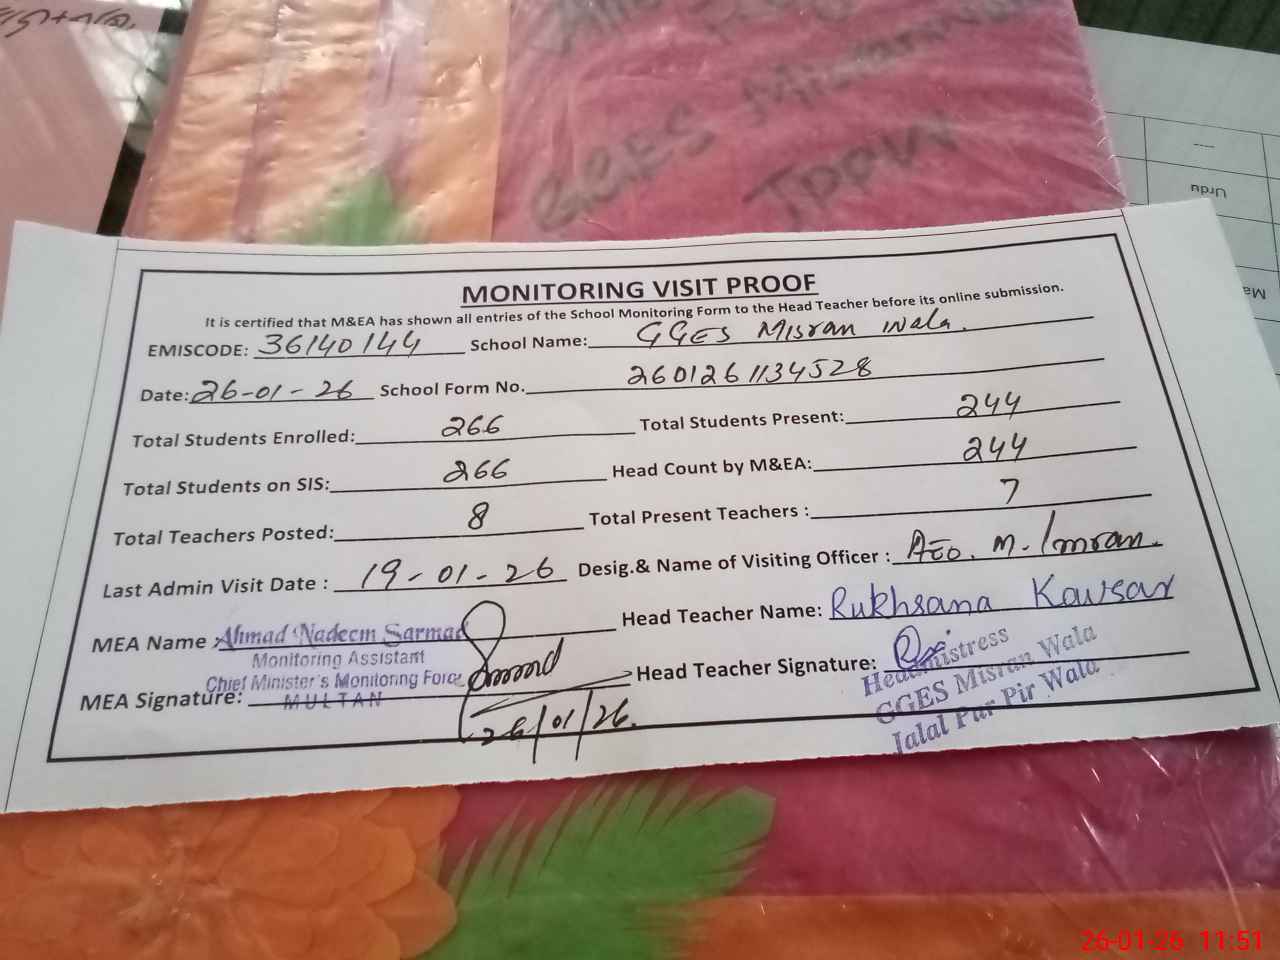 GGES Misran
JPPW
Urdu
MONITORING VISIT PROOF
It is certified that M&EA has shown all entries of the School Monitoring Form to the Head Teacher before its online submission.
EMISCODE: 36140144 School Name: GGES Misran wala.
Date: 26-01-26 School Form No. 2601261134528
Total Students Enrolled: 266 Total Students Present: 244
Total Students on SIS: 266 Head Count by M&EA: 244
Total Teachers Posted: 8 Total Present Teachers : 7
Last Admin Visit Date : 19-01-26 Desig.& Name of Visiting Officer : AEO. M. Imran.
MEA Name : Ahmad Nadeem Sarmad Head Teacher Name: Rukhsana Kawsar
Monitoring Assistant
Chief Minister's Monitoring Force
MULTAN
MEA Signature: Head Teacher Signature:
26/01/26.
Headmistress
GGES Misran Wala
Jalal Pur Pir Wala
26-01-26 11:51